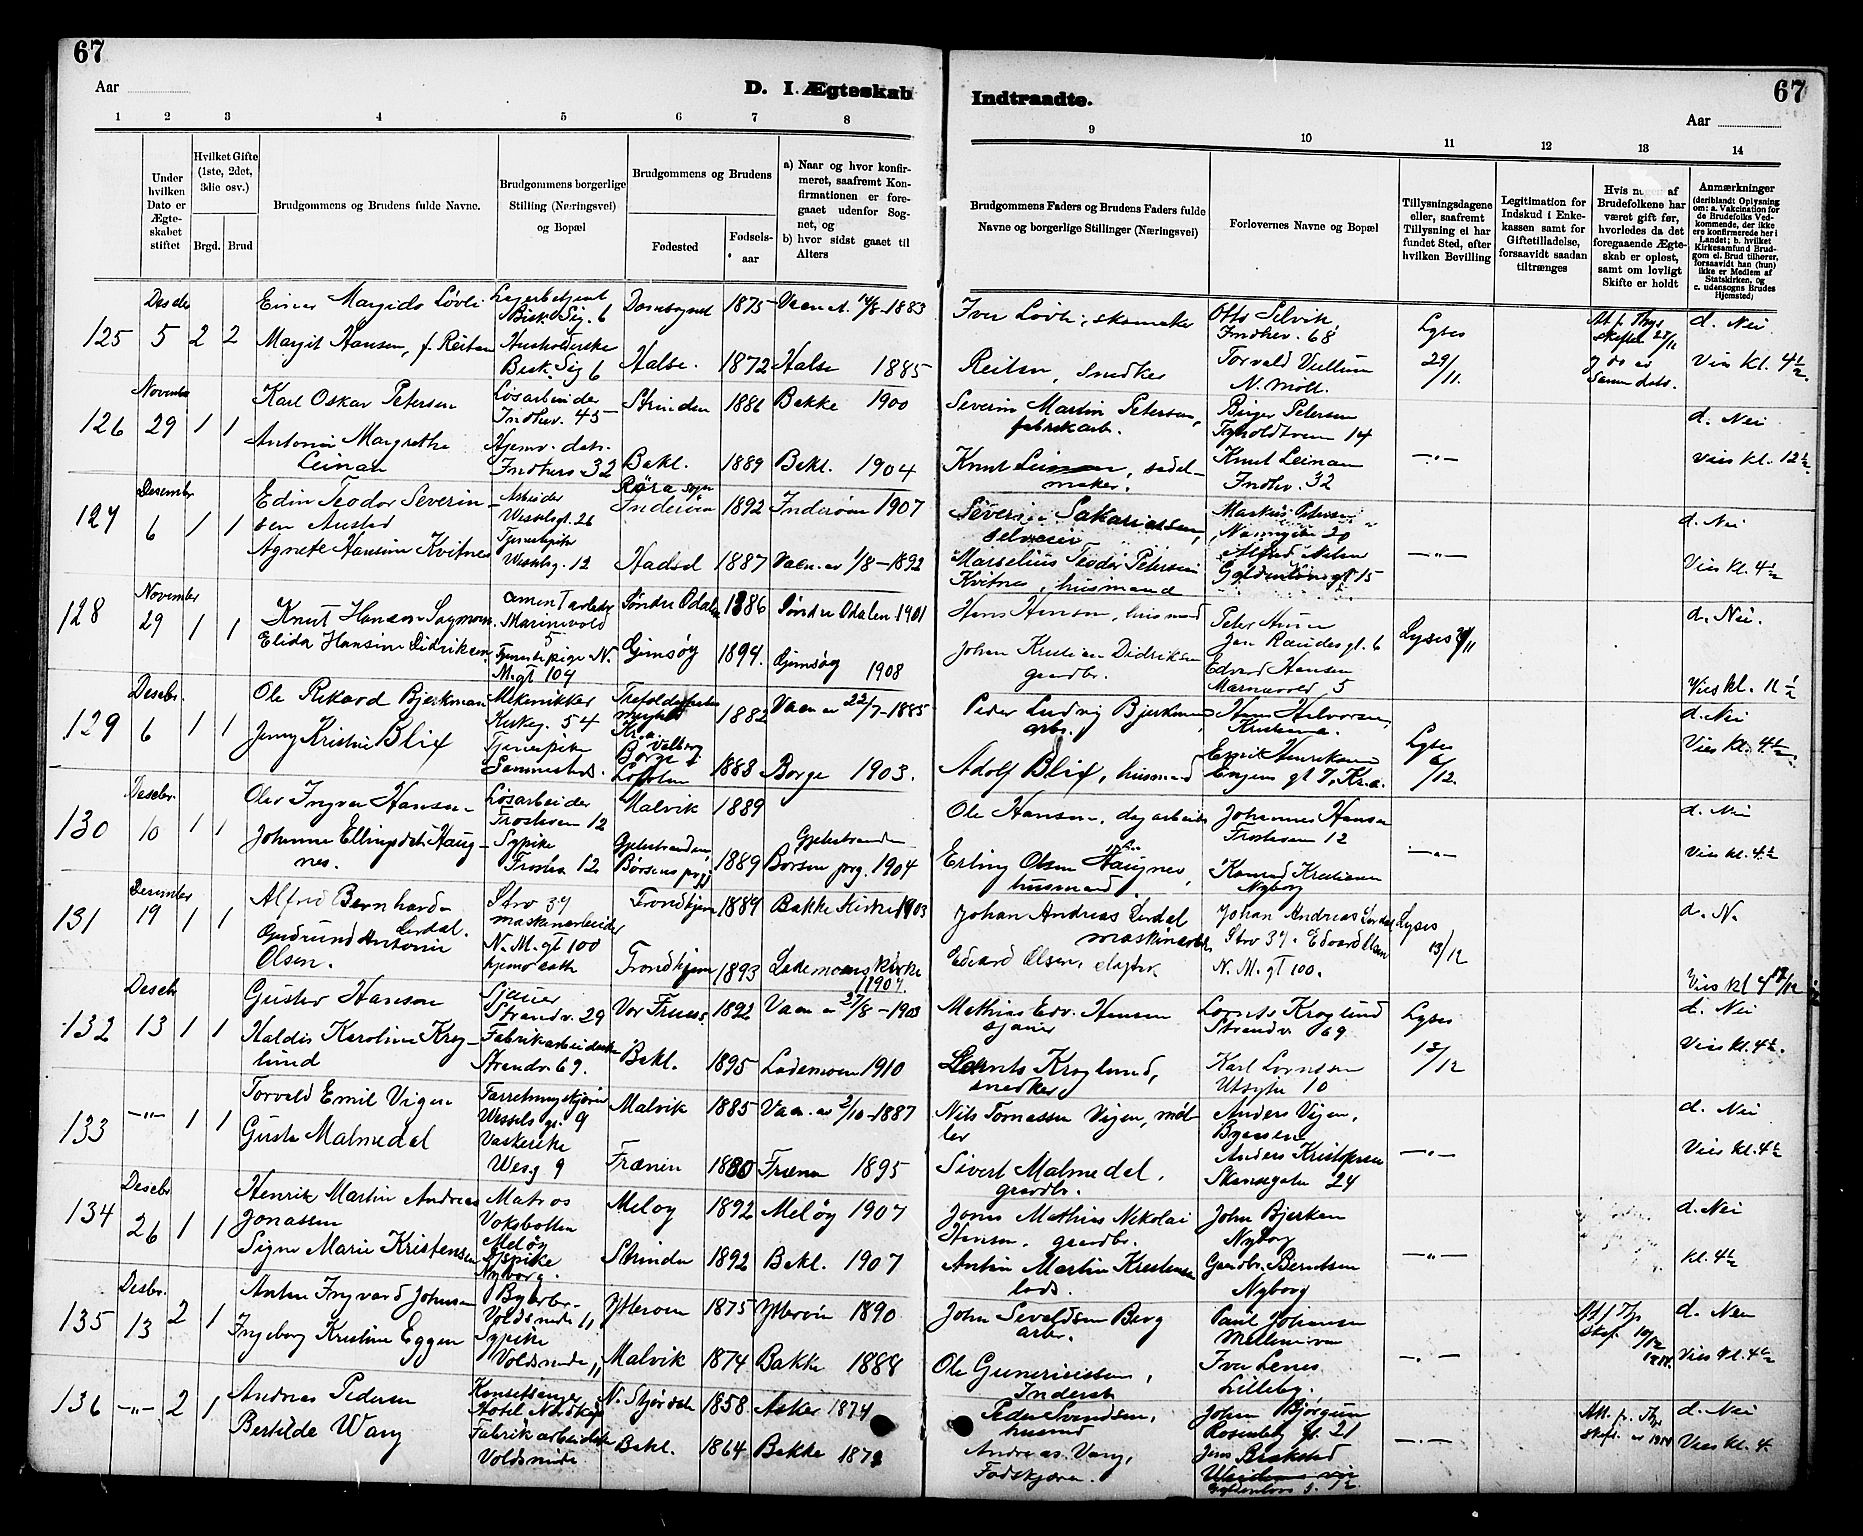 67
67
Aar
D. I Ægteskab
Indtraadte.
Aar
1 2 3 4 5 6 7 8
9 10 11 12 13 14
Under hvilken Dato er Ægteskabet stiftet
Hvilket Gifte (1ste, 2det, 3die osv.)
Brgd. Brud
Brudgommens og Brudens fulde Navne.
Brudgommens borgerlige Stilling (Næringsvei) og Bopæl
Brudgommens og Brudens
Fødested
Fødselsaar
a) Naar og hvor konfirmeret, saafremt Konfirmationen er foregaaet udenfor Sognet, og
b) hvor sidst gaaet til Alters
Brudgommens Faders og Brudens Faders fulde Navne og borgerlige Stillinger (Næringsvei)
Forlovernes Navne og Bopæl
Tillysningsdagene eller, saafremt Tillysning ei har fundet Sted, efter hvilken Bevilling
Legitimation for Indskud i Enkekassen samt for Giftetilladelse, forsaavidt saadan tiltrænges
Hvis nogen af Brudefolkene har været gift før, hvorledes da det foregaaende Ægteskab er opløst, samt om lovligt Skifte er holdt
Anmærkninger (deriblandt Oplysning om: a. Vakcination for de Brudefolks Vedkommende, der ikke ere konfirmerede her i Landet; b. hvilket Kirkesamfund Brudgom el. Brud tilhører, forsaavidt han (hun) ikke er Medlem af Statskirken, og c. udensogns Brudes Hjemsted)
125 Desebr 5 2 2
Løvli
1875 1883
Iver Løvli, skomaker
Otto Selvik
Indher. 68
Lyses 29/11.
d. Nei
Margit Hansen, f. Reitan
Bisk. Sig. 6
Halse. 1872 Halse 1885
Reitan, Snedker
Torvald
N. Møll.
Vies kl. 4½.
126 November 29 1 1
Karl Oskar Petersen
Løsarbeider
Indher. 45
Strinden 1886 Bakke 1900
Severin Martin Petersen, fabrikarb.
Birger Petersen
14
d. Nei
Antonie Margrethe Leinan
Hjemv. datr.
Indhers 32
Bakl. 1889 Bakl. 1904
Knut Leinan, sadelmaker.
Knut Leinan
Indhv. 32
Vies kl. 12½.
127 Desember 6 1 1
Edin Teodor Severinsen Austad
Arbeider
Wesselsgt. 26
Røra sogn
Inderøen 1892 Inderøen 1907
Severin Sakariassen, selveier
Markus Petersen
d. Nei
Agnete Hansine Kvitnes
Tjenestepike
Wesselsg. 12
Hadsel 1887 Vacn. av 1/8-1892
Marselius Teodor Petersen Kvitnes, husmand
Alfred Nilsen
15
Vies kl. 4½
128 November 29 1 1
Knut Hansen Sagmoen
Marinevold 5
Søndre Odalen 1886 Søndre Odalen 1901
Hans Hansen, husmand
Peter
Jon Raudes gt. 6
Lyses
d. Nei.
Elida Hansine Didriksen
Tjenestepige N. M. gt 104
Gimsøy 1894. Gimsøy 1908
Johan Kristian Didriksen gaardbr.
Edvard Hansen
5
Vies kl. 11½
129 Desebr. 6 1 1
Ole Rikard Bjerkman
Mekanikker
Kirkeg. 54
Kr.a.
1882 Vacn av 22/7-1885
Peder Ludvig Bjerkman arbr.
Hans Halvorsen, Kristiania.
Lyses 6/12.
d. Nei
Jenny Kristine Blix
Tjenerpike
Sammesteds.
Valberg
Borge i Lofoten 1888 Borge 1903.
Adolf Blix, husmand
Henriksen
gt 7, Kr.a.
Vies kl. 4½.
130 Desebr. 10 1 1
Olav Ingvar Hansen
Løsarbeider
Frostaven 12
Malvik 1889
Ole Hansen, dagarbeider
Johannes Hansen
Frostaven 12
d. Nei
Johanne Ellingsdatr. Haugnes.
Sypike
Frosta. 12
Gjeitestranden, Børsens prgj 1889
Gjeitestranden Børsen prg. 1904
Erling Olsen Haugnes, husmand.
Konrad Kristiansen
Nyborg
Vies kl. 4½
131 Desember 19 1 1
Alfred Bernhard Lerdal.
Strv 37
maskinarbeider
Trondhjem 1889 Bakke Kirke 1903
Johan Andreas Lerdal maskinarb.
Johan Andreas Lerdal
Strv 37. Edvard Olsen
N. M. gt 100.
Lyses 13/12
d. N.
Gudrund Antonie Olsen.
N. M. gt 100
hjemv. datr
Trondhjem 1893 Lademoens Kirke 1907.
Edvard Olsen,
Vies kl 4
132 Desebr 13 1 1
Gustav Hansen
Sjauer
Strandv. 29
Vor Frues. 1892 Vacn av 27/8-1903
Mathias Edv. Hansen sjauer
Lornts Kroglund
Strandv. 69
Lyses 13/12
d. Nei
Haldis Karoline Kroglund
Fabrikarbeiderske
Strandv. 69.
Bakl. 1895 Lademoen 1910
Lornts Kroglund, snedker
Karl Lorntsen
Utsyta 10
Vies kl. 4½.
133 -"- 1 1
Torvald Emil Vigen
Forretningskjører
Wessels gt. 9
Malvik 1885 Vacn. av 2/10-1887
Nils Tomassen Vigen, møller
Anders Vigen,
d. Nei
Gusta Malmedal
Vaskerske
Wesg 9
Frænen 1880 Fræna 1895
Sivert Malmedal, gaardbr.
Anders Kristofersen
24
Vies kl. 4½
134 Desebr 26 1 1
Henrik Martin Andreas Jonassen
Matros
Meløy
Meløy 1892 Meløy 1907
Jonas Mathias Nikolai Hansen, gaardbr.
John Bjerkan
Nyborg
d. Nei
Signe Marie Kristensen
Sypike
Nyborg.
Strinda 1892 Bakl. 1907
Anton Martin Kristensen lods.
Berntsen
Nyborg
kl. 4½
135 Desbr. 13 2 1
Anton Ingvard Johnsen
Voldsminde 11
Ytterøen 1875 Ytterøen 1890
John Sevaldsen Berg arbr.
Paul Johansen
d. Nei
Ingeborg Kristine Eggen
Sypike
Voldsminde 11
Malvik 1874 Bakke 1888
Ole
Inderst
Iver Lenes
Lilleby.
Vies kl. 4½
136 -"- 2 1
Andreas Pedersen
Hotel Nordkap
N. Stjørdalen 1858. Asker 1874
Peder Svendsen, husmd
John Bjørgum
Rosenborg gt. 21
d. Nei
Bertilde Wang
Fabrikarbeiderske
Voldsminde
Bakl. 1864 Bakke 1879
Andreas Wang, Fodskjører.
Jens Brekstad
Vies kl. 4.